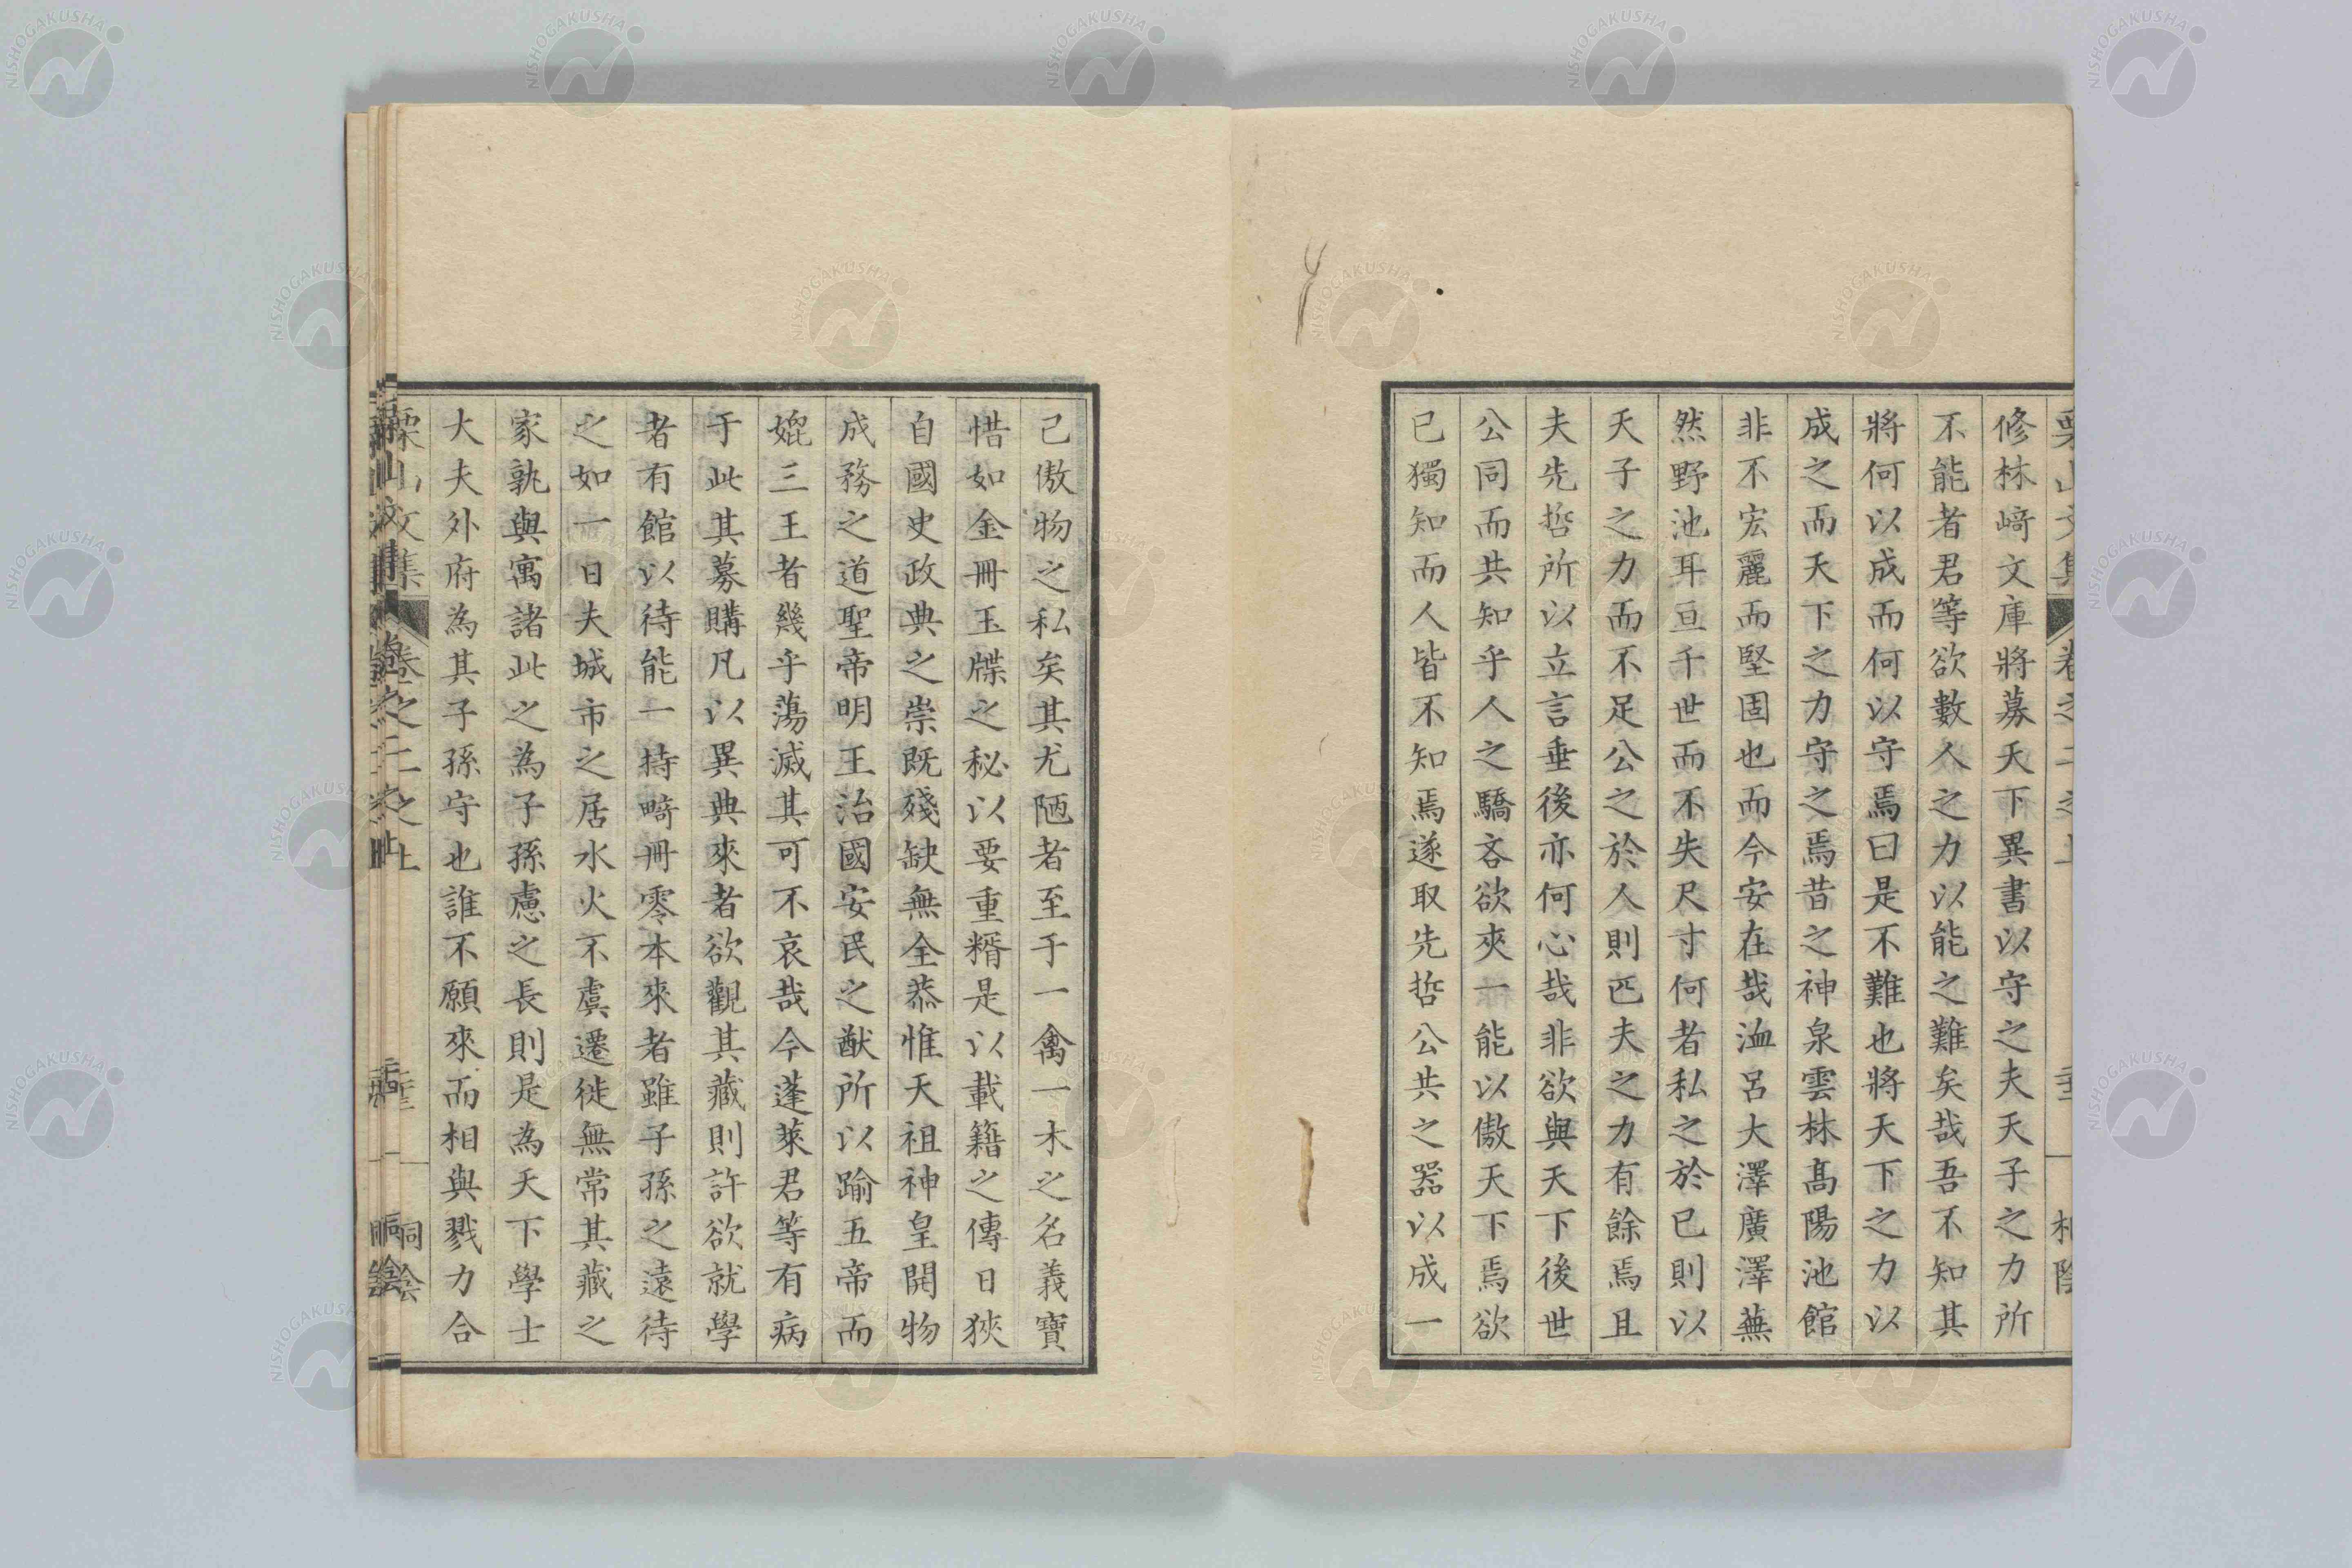 修林﨑文庫將募天下異書以守之夫天子之力所
不能者君等欲數人之力以能之難矣哉吾不知其
將何以成而何以守焉曰是不難也將天下之力以
成之而天下之力守之焉昔之神泉雲林髙陽池館
非不宏麗而堅固也而今安在哉洫呂大澤廣澤蕪
然野池耳亘千世而不失尺寸何者私之於己則以
天子之力而不足公之於人則匹夫之力有餘焉且
夫先哲所以立言垂後亦何心哉非欲與天下後世
公同而共知乎人之驕吝欲夾一能以傲天下焉欲
已獨知而人皆不知焉遂取先哲公共之器以成一
己傲物之私矣其尤陋者至于一禽一木之名義寶
惜如金冊玉牒之秘以要重糈是以載籍之傳日狹
自國史政典之崇既殘缺無全恭惟天祖神皇開物
成務之道聖帝明王治國安民之猷所以踰五帝而
媲三王者幾乎蕩滅其可不哀哉今蓬萊君等有病
于此其募購凡以異典來者欲觀其藏則許欲就學
者有館以待能一持畸冊零本來者雖子孫之遠待
之如一日夫城市之居水火不虞遷徙無常其藏之
家孰與寓諸此之為子孫慮之長則是為天下學士
大夫外府為其子孫守也誰不願來而相與戮力合
栗山文集